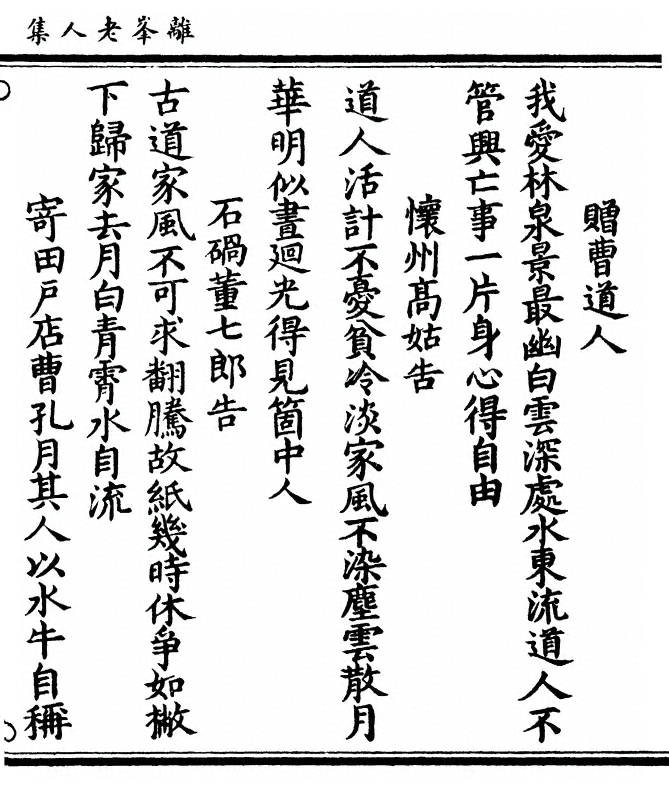 離峯老人集
贈曹道人
我愛林泉景最幽白雲深處水東流道人不
管興亡事一片身心得自由
懷州髙姑告
道人活計不憂貧冷淡家風不染塵雲散月
華明似晝廻光得見箇中人
石碢董七郎告
古道家風不可求翻騰故紙幾時休爭如撇
下歸家去月白青霄水自流
寄田戸店曹孔月其人以水牛自稱